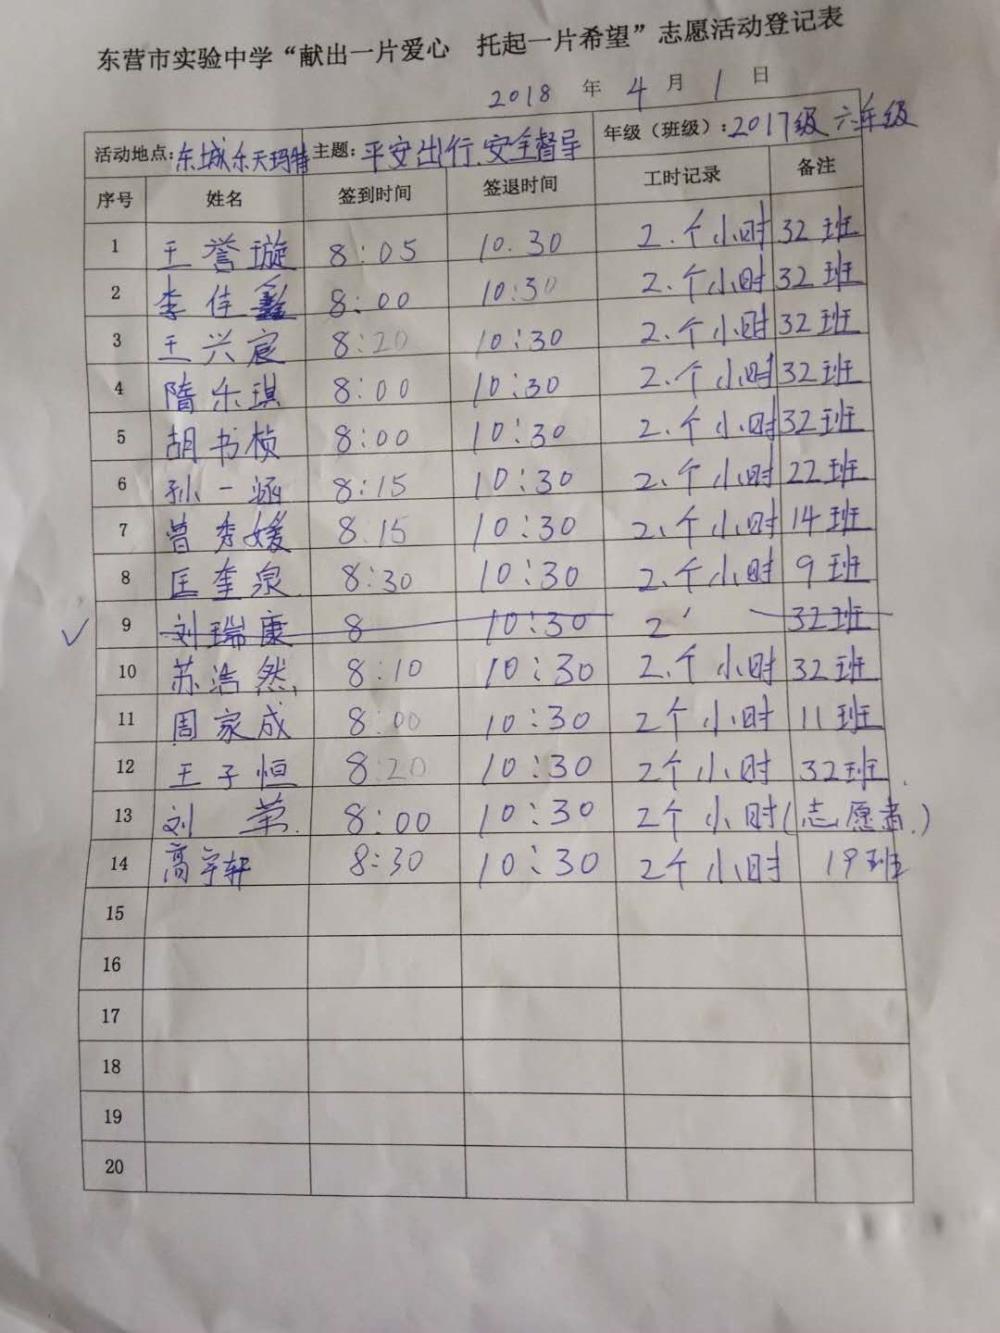 东营市实验中学“献出一片爱心 托起一片希望”志愿活动登记表
2018 年 4 月 1 日
活动地点:东城乐天玛特 主题:平安出行、安全督导 年级（班级）:2017级 六年级
序号 姓名 签到时间 签退时间 工时记录 备注
1 王誉璇 8:05 10.30 2.个小时 32班
2 李佳鑫 8:00 10:30 2.个小时 32班
3 王兴宸 8:20 10:30 2.个小时 32班
4 隋乐琪 8:00 10:30 2.个小时 32班
5 胡书桢 8:00 10:30 2.个小时 32班
6 孙一涵 8:15 10:30 2.个小时 22班
7 曾秀媛 8.15 10:30 2.个小时 14班
8 匡奎泉 8:30 10:30 2.个小时 9班
√ 9 刘瑞康 8 10:30 2 32班
10 苏浩然 8:10 10:30 2.个小时 32班
11 周家成 8:00 10:30 2个小时 11班
12 王子恒 8:20 10:30 2个小时 32班
13 刘 8:00 10:30 2个小时 (志愿者.)
14 高宇轩 8:30 10:30 2个小时 19班
15
16
17
18
19
20